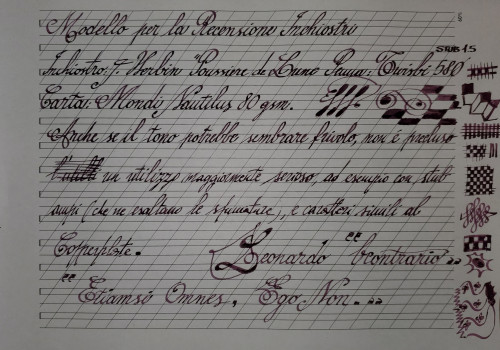 Modello per la Recensione Inchiostri
Stub 1.5
Inchiostro: J. Herbin "Poussière de Lune Penna: Twisbi 580
Carta: Mondi Nautilus 80 gsm.
Anche se il tono potrebbe sembrare frivolo, non è precluso
un utilizzo maggiormente serioso, ad esempio con stub
ampi (che ne esaltano le sfumature), e caratteri simili al
Copperplate. Leonardo "beontrario"
"Etiamsi Omnes, Ego Non."